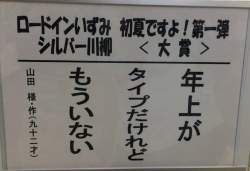 ロードインいずみ 初夏ですよ！第一弾
シルバー川柳 ＜大賞＞
年上が
タイプだけれど
もういない
山田 様・作（九十二才）